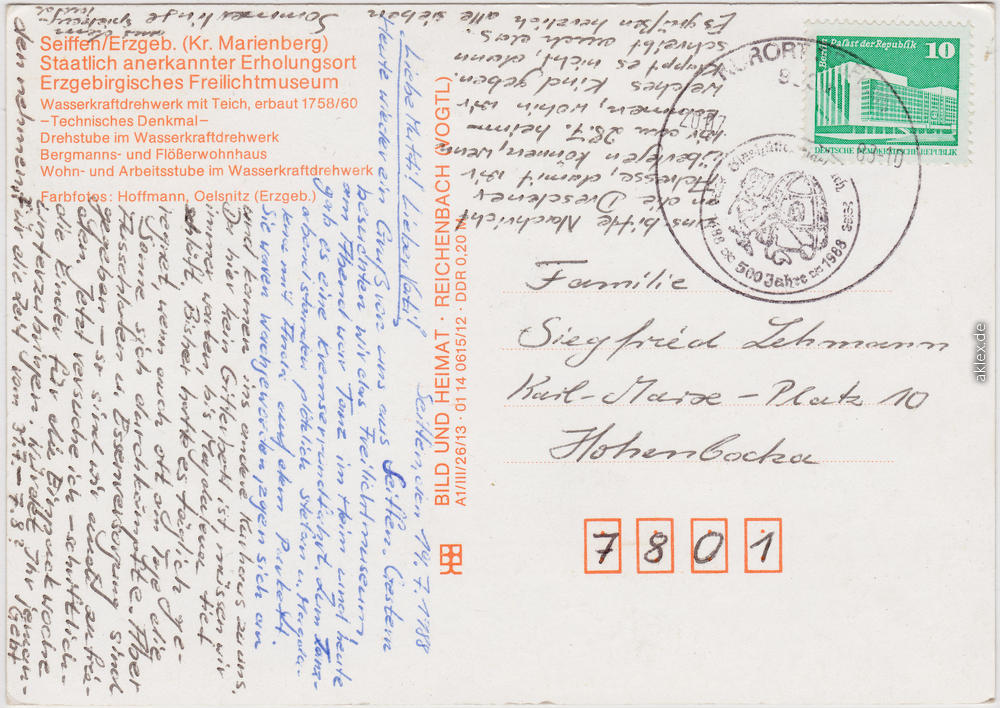 Seiffen/Erzgeb. (Kr. Marienberg)
Staatlich anerkannter Erholungsort
Erzgebirgisches Freilichtmuseum
Wasserkraftdrehwerk mit Teich, erbaut 1758/60
—Technisches Denkmal—
Drehstube im Wasserkraftdrehwerk
Bergmanns- und Flößerwohnhaus
Wohn- und Arbeitsstube im Wasserkraftdrehwerk
Farbfotos: Hoffmann, Oelsnitz (Erzgeb.)
BILD UND HEIMAT · REICHENBACH (VOGTL)
A1/III/26/13 · 01 14 0615/12 · DDR 0,20 M
Seiffen, den 19.7.1988
Liebe Mutti! Lieber Vati!
Heute wieder ein Gruß von uns aus Seiffen. Gestern
besuchten wir das Freilichtmuseum,
am Abend war Tanz im Heim und heute
gab es eine Kremserrundfahrt. Zum Tanz-
abend standen plötzlich Stefan u.
mit Ihnen auf dem Parkett.
Sie waren wach geworden, zogen sich an
und kamen ins andere Kurhaus zu uns.
Da hier kein Gitterbett ist, müssen wir
immer warten bis Magdalena tief
schläft. Bisher hatte es täglich ge-
regnet, wenn auch oft am Tage die
Sonne sich durchkämpfte. Aber
Ausfahrten u. Essenversorgung sind
gegeben – so sind wir zufrie-
den. Jetzt versuche ich schriftlich
die Kinder für die Einzugswoche
unterzubringen. Würdet Ihr jeman-
den nehmen für die Zeit vom 31.7.–7.8.? Gebt
uns bitte Nachricht
an die Dresdener
Adresse, damit wir
überlegen können, wenn
wir am 28.7. heim-
kommen, wohin wir
welches Kind geben.
Klappt es nicht, dann
schreibt auch das.
Es grüßen herzlich alle sieben
Sommerlinge aus dem
Berlin, Palast der Republik 10
DEUTSCHE DEMOKRATISCHE REPUBLIK
KURORT
500 Jahre
1488
1988
Familie
Siegfried Lehmann
Karl-Marx-Platz 10
Hohenbocka
7801
aklex.de